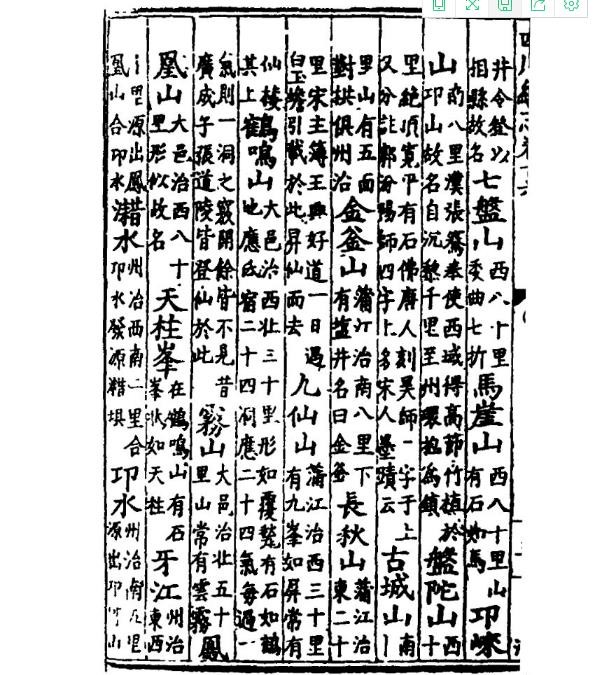 井令登以
相縣故名
七盤山
西八十里
委曲七折
馬崖山
西八十里山
有石如馬
卭崍
山
八里漢張騫奉使西域得高節竹植於
卭山故名自沉黎千里至州環抱為鎮
盤陀山
西
十
里絶頂寛平有石佛唐人刻異師一字于上
又分註汾陽師四字上名宋人墨蹟云
古城山
南
里山有五面
對拱俱州治
金釜山
蒲江治南八里下
有塩井名曰金釜
長秋山
蒲江治
東二十
里宋主簿王興好道一日遇
白玉蟾引載於此昇仙而去
九仙山
蒲江治西三十里
有九峯如屏常有
仙棲
其上
鳴山
大邑治西北三十里形如覆甕有石如鶴
地應氐宿二十四洞應二十四氣每過一
氣則一洞之竅開餘皆不見昔
廣成子張道陵皆登仙於此
霧山
大邑治北五十
里山常有雲霧
鳳
凰山
大邑治西八十
里形似故名
天柱峯
在鶴鳴山有石
峯狀如天柱
牙江
州治
東西
里源出鳳
凰山合卭水
水
州治西南二里合
卭水發源垻
卭水
州治南五里
源出卭山